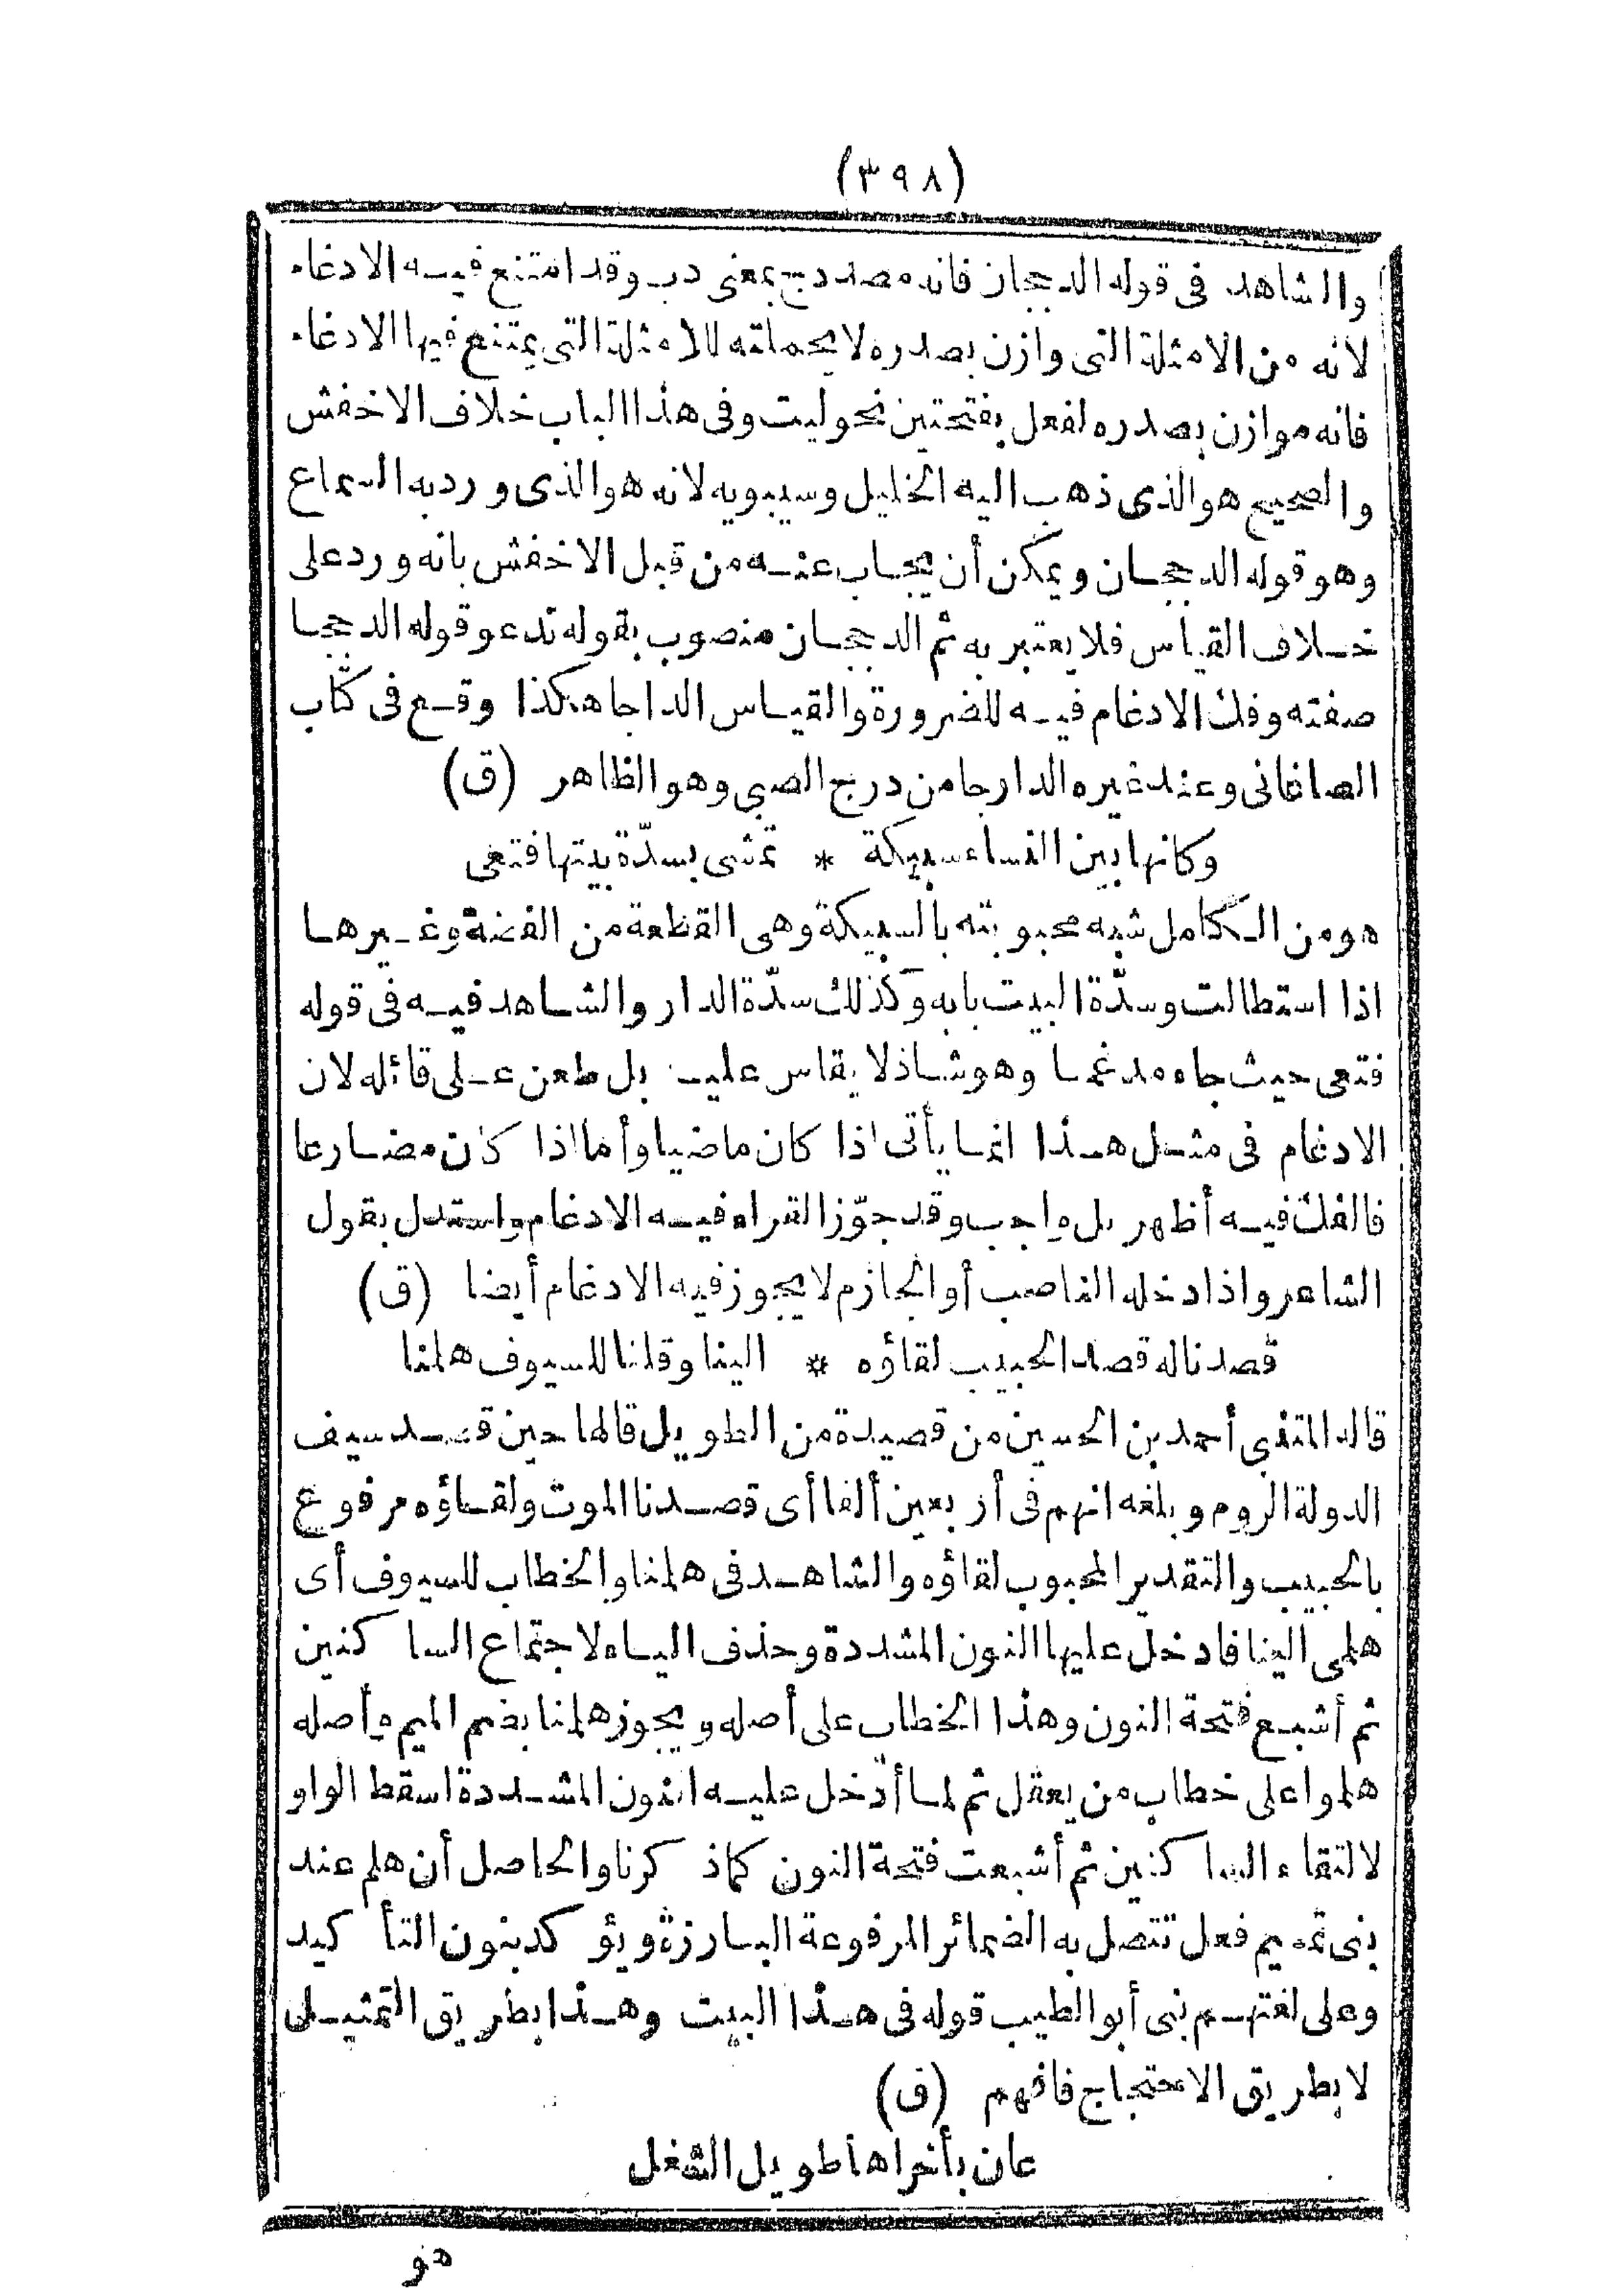 (٣٩٨)
والشاهد فى قوله الدججان فانه مصدر دج بمعنى دب وقد امتنع فيه الادغام
لانه من الامثلة التى وازن بصدره لا بجملته للامثلة التى يمتنع فيها الادغام
فانه موازن بصدره لفعل بفتحتين نحو لبت وفى هذا الباب خلاف الاخفش
والصحيح هو الذى ذهب اليه الخليل وسيبويه لانه هو الذى ورد به السماع
وهو قوله الدججان ويمكن أن يجاب عنه من قبل الاخفش بانه ورد على
خلاف القياس فلا يعتبر به ثم الدججان منصوب بقوله تدعو وقوله الدججا
صفته وفك الادغام فيه للضرورة والقياس الداجا هكذا وقع فى كتاب
الصاغانى وعند غيره الدارجا من درج الصبى وهو الظاهر (ق)
وكانها بين النساء سبيكة * تمشى بسدّة بيتها فتعى
هو من الكامل شبه محبوبته بالسبيكة وهى القطعة من الفضة وغيرها
اذا استطالت وسدّة البيت بابه وكذلك سدّة الدار والشاهد فيه فى قوله
فتعى حيث جاء مدغما وهو شاذ لا يقاس عليه بل طعن على قائله لان
الادغام فى مثل هذا انما يأتى اذا كان ماضيا وأما اذا كان مضارعا
فالفك فيه أظهر بل واجب وقد جوّز الفراء فيه الادغام واستدل بقول
الشاعر واذا دخله الناصب أو الجازم لا يجوز فيه الادغام أيضا (ق)
قصدنا له قصد الحبيب لقاؤه * الينا وقلنا للسيوف هلمنا
قاله المتنبى أحمد بن الحسين من قصيدة من الطويل قالها حين قصد سيف
الدولة الروم وبلغه انهم فى أربعين ألفا أى قصدنا الموت ولقاؤه مرفوع
بالحبيب والتقدير المحبوب لقاؤه والشاهد فى هلمنا والخطاب للسيوف أى
هلمى الينا فادخل عليها النون المشددة وحذف الياء لاجتماع الساكنين
ثم أشبع فتحة النون وهذا الخطاب على أصله ويجوز هلمنا بضم الميم وأصله
هلموا على خطاب من يعقل ثم لما أدخل عليه النون المشددة اسقط الواو
لالتقاء الساكنين ثم أشبعت فتحة النون كما ذكرنا والحاصل أن هلم عند
بنى تميم فعل تتصل به الضمائر المرفوعة البارزة ويؤكد بنون التأكيد
وعلى لغتهم بنى أبو الطيب قوله فى هذا البيت وهذا بطريق التمثيل
لا بطريق الاحتجاج فافهم (ق)
عان بأخراها طويل الشغل
هو